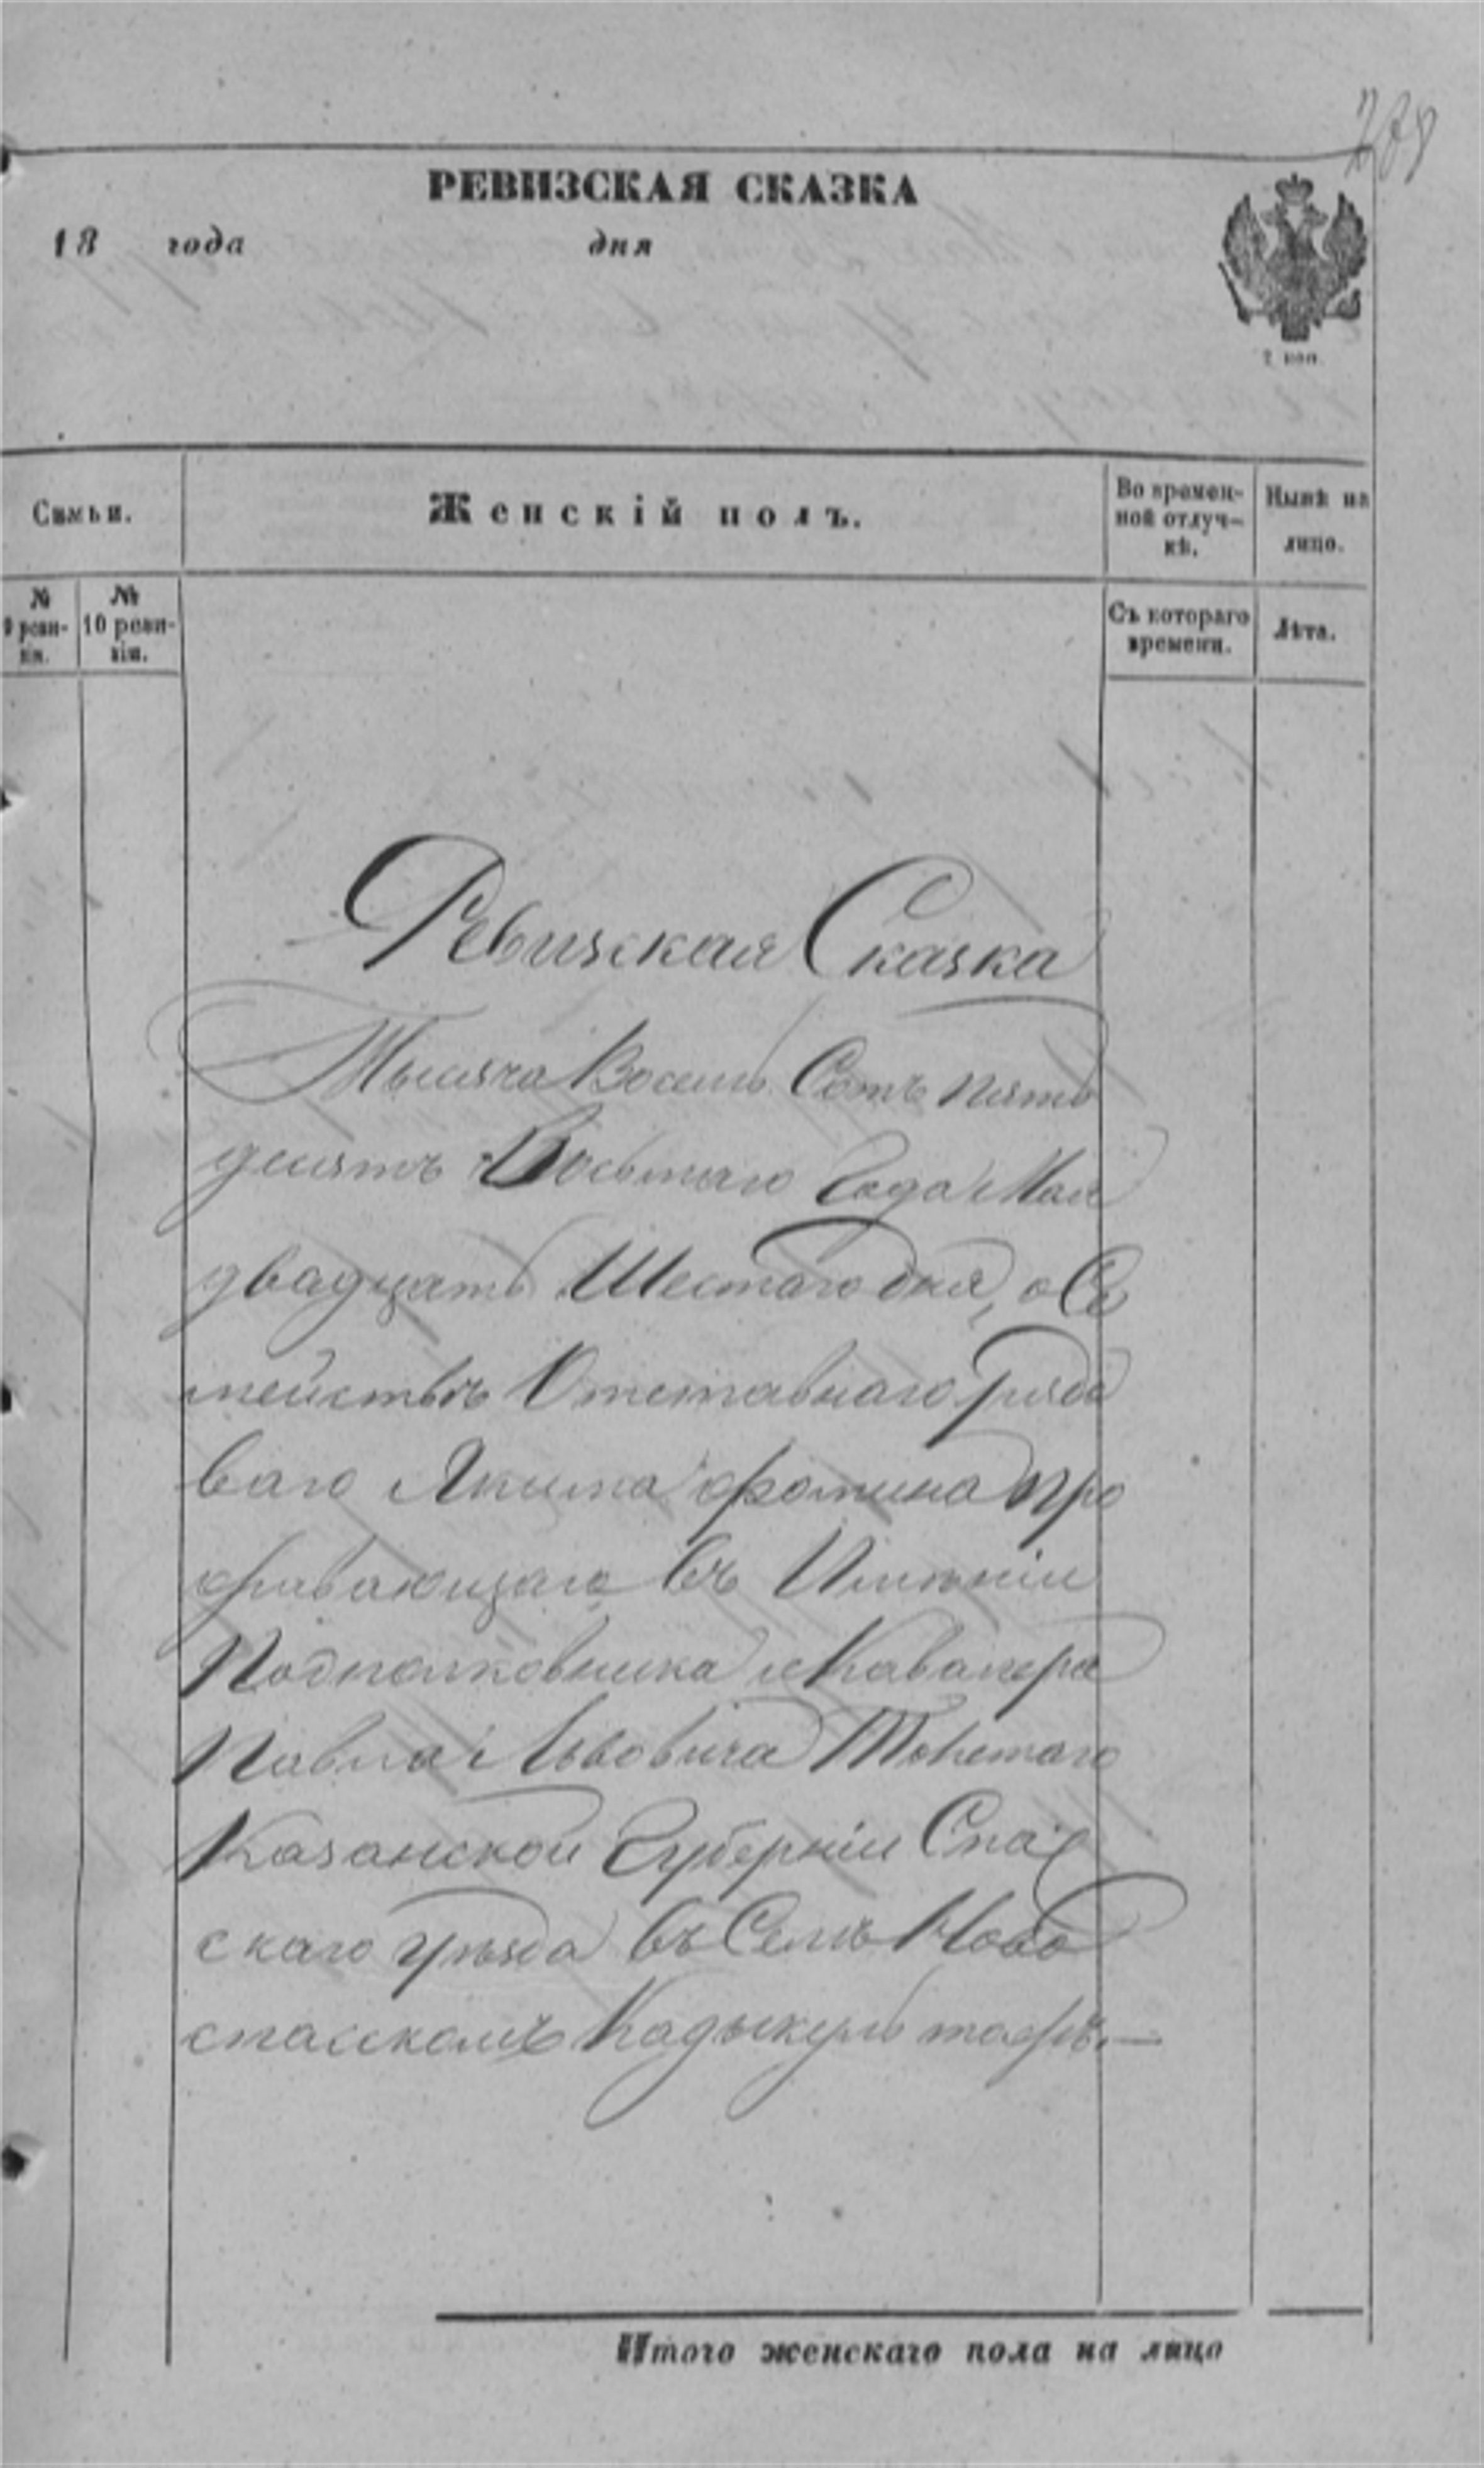 РЕВИЗСКАЯ СКАЗКА
18 года дня
2 коп.
Семьи. Женскій полъ. Во времен-
ной отлуч-
кѣ. Нынѣ на
лицо.
№
9 реви-
зіи. №
10 реви-
зіи. Съ котораго
времени. Лѣта.
Ревизская Сказка
Тысяча Восемь Сотъ пять
десятъ Восьмаго Года Мая
двадцать Шестаго дня, о Се
мействѣ Отставнаго рядо
ваго Якима Фомина про
живающаго въ Имѣніи
Подполковника и Кавалера
Павла Львовича Толстаго
Казанской Губерніи Спас
скаго уѣзда въ Селѣ Ново
спасскомъ Кадыкуль тожъ.—
Итого женскаго пола на лицо